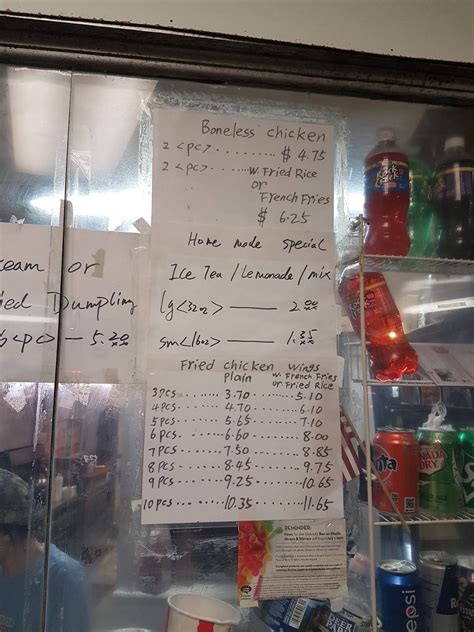 Boneless chicken
2 <pc> .......... $ 4.75
2 <pc> ...... w. Fried Rice
or
French Fries
$ 6.25
Home made special
Ice Tea / Lemonade / mix
lg <32oz> —— 2.00
sm <16oz> —— 1.35
eam or
ied Dumpling
<pc> — 5.20
Fried chicken Wings
Plain w. French Fries
or Fried Rice
3 PCS ........ 3.70 ........ 5.10
4 PCS ........ 4.70 ........ 6.10
5 PCS ........ 5.65 ........ 7.10
6 PCS ........ 6.60 ........ 8.00
7 PCS ........ 7.50 ........ 8.85
8 PCS ........ 8.45 ........ 9.75
9 PCS ........ 9.25 ........ 10.65
10 PCS ........ 10.35 ........ 11.65
REMINDER:
NADA
DRY
pepsi
DEER
PARK